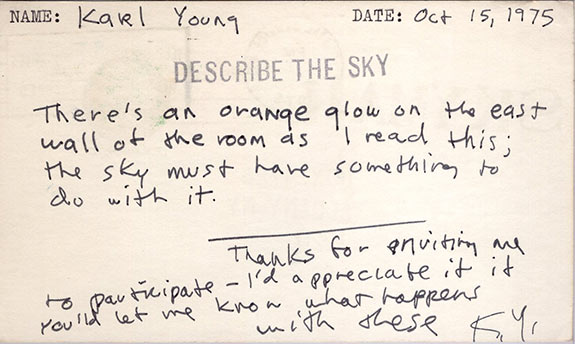 NAME: Karl Young DATE: Oct 15, 1975
DESCRIBE THE SKY
There's an orange glow on the east
wall of the room as I read this;
the sky must have something to
do with it.
Thanks for inviting me
to participate – I'd appreciate it if
you'd let me know what happens
with these K.Y.